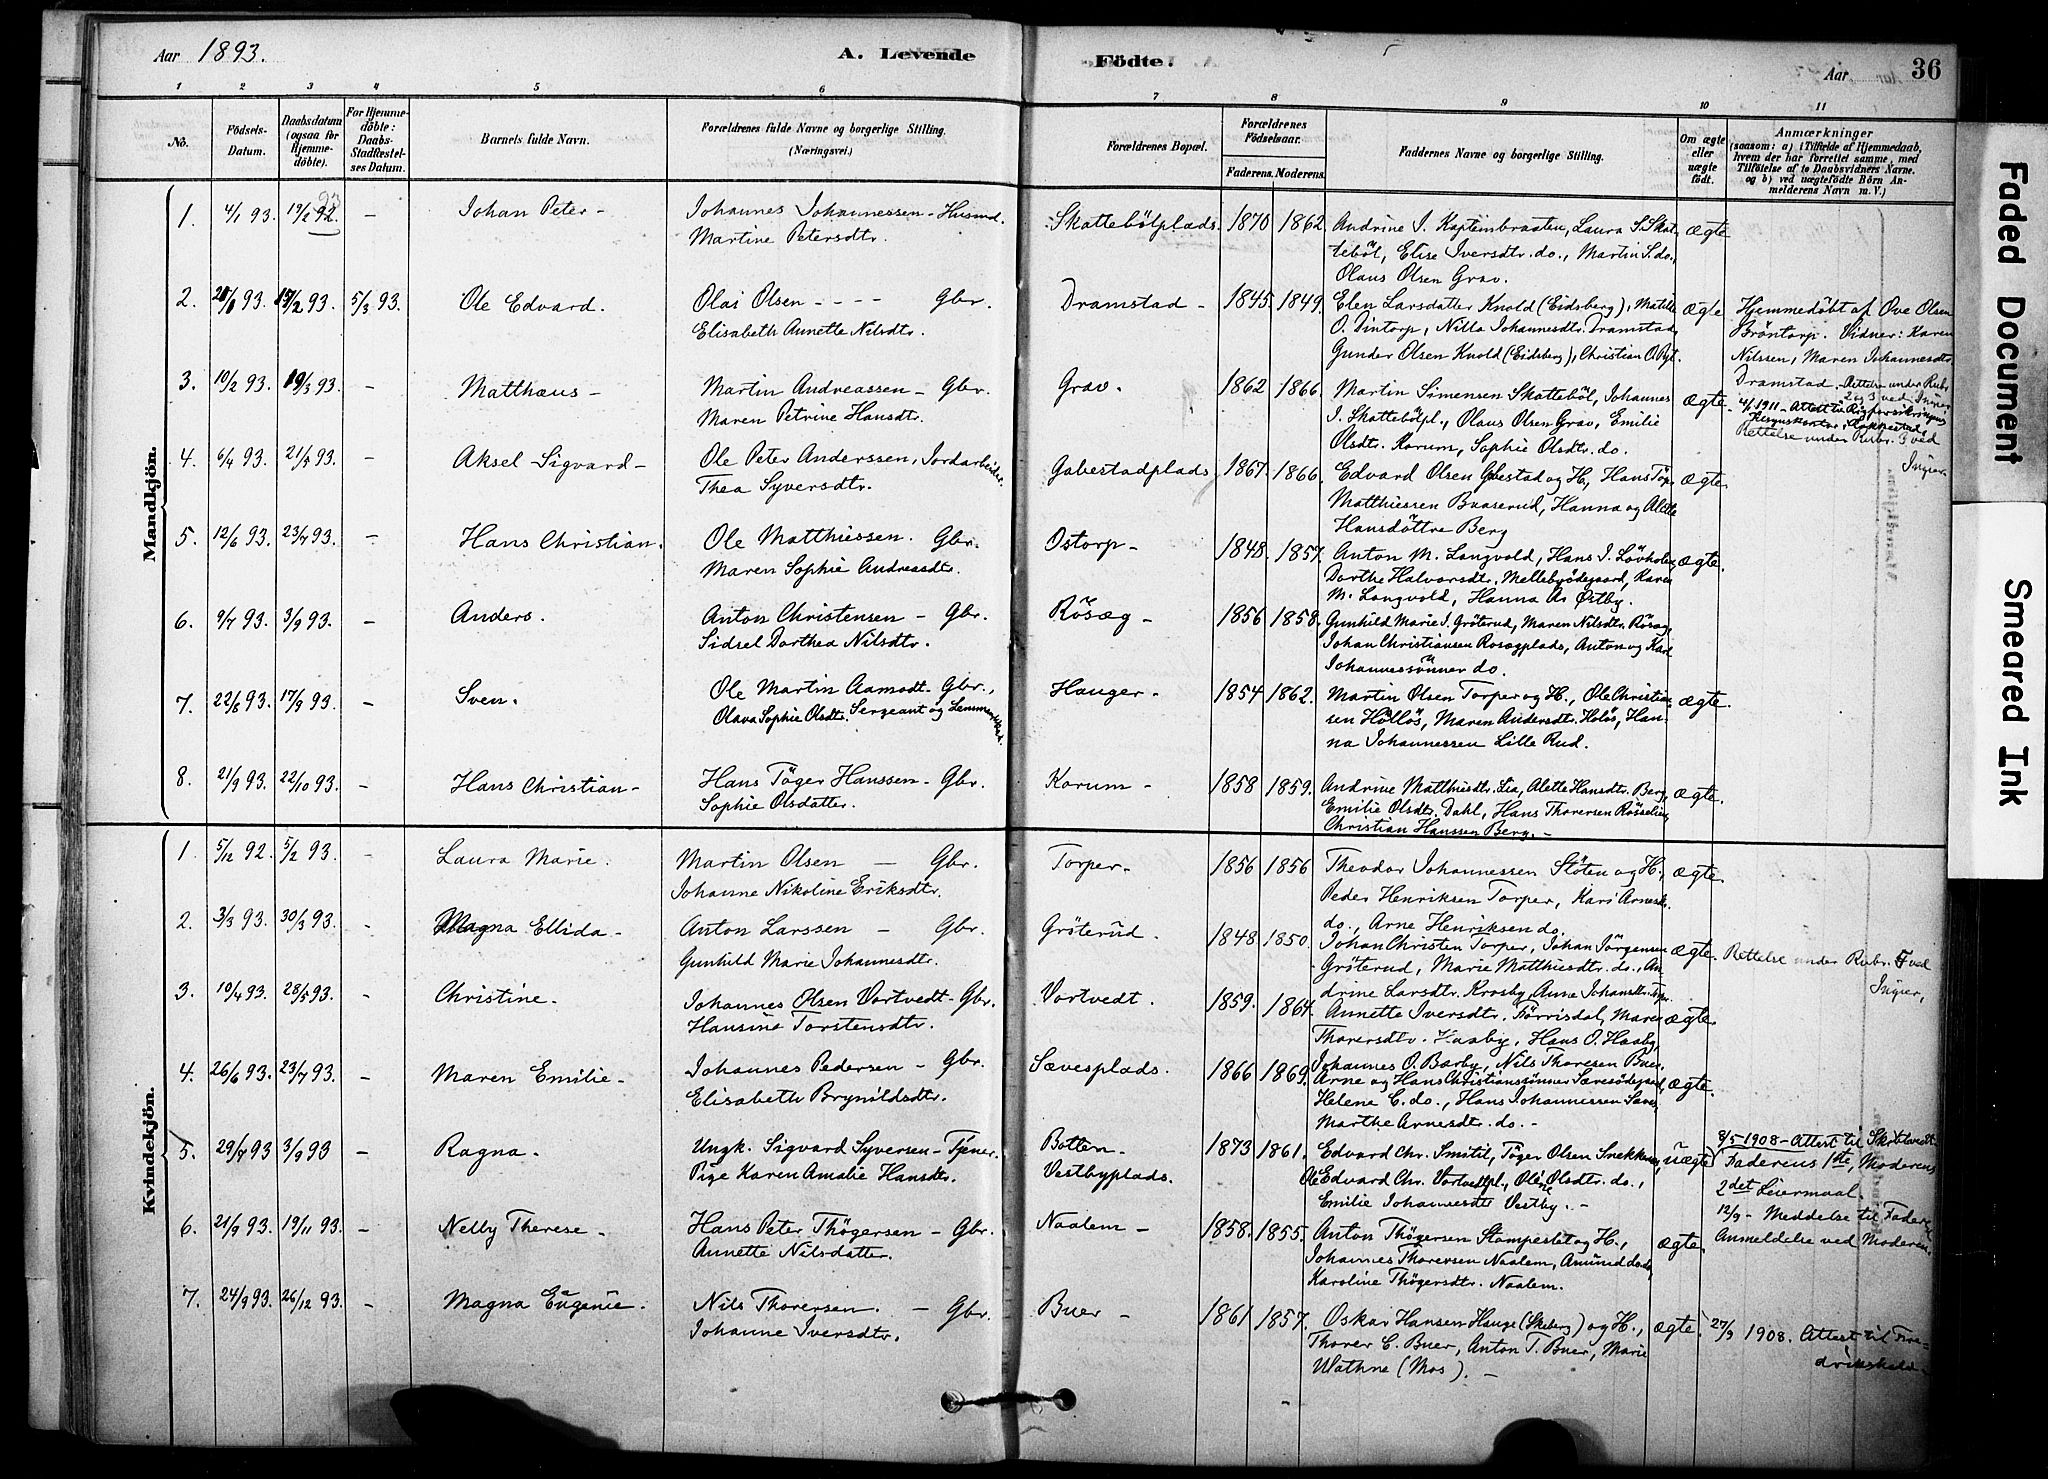 Aar 1893.
A. Levende
Födte.
Aar
36
1 2 3 4 5 6 7 8 9 10 11
No.
Födsels-
Datum.
Daabsdatum
(ogsaa for
Hjemme-
döbte).
For Hjemme-
döbte:
Daabs-
Stadfæstel-
ses Datum.
Barnets fulde Navn.
Forældrenes fulde Navne og borgerlige Stilling.
(Næringsvei.)
Forældrenes Bopæl.
Forældrenes
Födselsaar.
Faderens. Moderens.
Faddernes Navne og borgerlige Stilling.
Om ægte
eller
uægte
födt.
Anmærkninger
(saasom: a) i Tilfælde af Hjemmedaab,
hvem der har forrettet samme, med
Tilföielse af to Daabsvidners Navne.
og b) ved uægtefödte Börn An-
melderens Navn m. V.)
Mandkjön.
1. 4/1 93. 19/2 92. 93 – Johan Peter – Johannes Johannessen – Husmd. Skattebölplads. 1870 1862. Andrine J. Kapteinbraaten, Laura S. Skat- ægte
Martine Petersdtr. teböl, Elise Iversdtr. do., Martin S. do.,
Olaus Olsen Grav.
2. 93. 93. 5/3 93. Ole Edvard. Olai Olsen – – – – Gbr. Dramstad – 1845. 1849. Elen Larsdatter Knold (Eidsberg), ægte Hjemmedöbt af Ove Olsen
Elisabeth Annette Nilsdtr. O. Dintorp, Nilla Johannesdtr. Dramstad, Bröntorp. Vidner: Karen
Gunder Olsen Knold (Eidsberg), Christian O. Nilssen, Maren Johannesdtr.
3. 10/2 93. 19/3 93. – Matthæus – Martin Andreassen – Gbr. Grav. 1862 1866. Martin Simensen Skatteböl, Johannes ægte. Dramstad. Rettelse under Rubr.
Maren Petrine Hansdtr. J. Skattebölpl., Olaus Olsen Grav, Emilie 2 og 3 ved Ingier
Olsdtr. Korum, Sophie Olsdtr. do. 4/1 1911 – Attest til
Rettelse under Rubr. 3 ved
4. 6/4 93. 21/5 93. – Aksel Sigvard – Ole Peter Anderssen, Jordarbeider. Gabestadplads 1867. 1866. Edvard Olsen Gbestad og H., Hans ægte Ingier.
Thea Syversdtr. Matthiessen Buaserud, Hanna og Alette
Hansdöttre Berg
5. 12/6 93. 23/7 93. – Hans Christian. Ole Matthiessen. Gbr. Ostorp – 1848. 1857. Anton M. Langvold, Hans J. Lövholen, ægte.
Maren Sophie Andreasdtr. Dorthe Halvorsdtr. Mellebyödegaard, Karen
M. Langvold, Hanna A. Østby.
6. 9/7 93. 3/9 93. – Anders. Anton Christensen – Gbr. Rösæg – 1856 1858. Gunhild Marie J. Gröterud, Maren Nilsdtr. Rösæg,
Sidsel Dorthea Nilsdtr. Johan Christiansen Rosægplads, Anton og Karl
Johannessönner do
7. 22/6 93. 17/9 93. – Sven. Ole Martin Aamodt – Gbr., Hauger – 1854 1862. Martin Olsen Torper og H., Ole Christian- ægte.
Olava Sophie Olsdtr. Sergeant og sen Höllös, Maren Andersdtr. Holös, Han-
na Johannessen Lille Rud.
8. 21/9 93. 22/10 93. – Hans Christian – Hans Töger Hanssen – Gbr. Korum – 1858 1859. Andrine Matthisdtr. Lia, Alette Hansdtr. Berg, ægte.
Sophie Olsdatter. Emilie Olsdtr. Dahl, Hans Thoresen Rösselien
Christian Hanssen Berg. –
Kvindekjön.
1. 5/12 92. 5/2 93. – Laura Marie. Martin Olsen – Gbr. Torper. 1856 1856 Theodor Johannessen Slöten og H., ægte.
Johanne Nikoline Eriksdtr. Peder Henriksen Torper, Kari Arnesdtr.
do., Arne Henriksen do.
2. 3/3 93. 30/3 93. – Magna Ellida – Anton Larssen – Gbr. Gröterud. 1848 1850. Johan Christen Torper, Johan Jörgensen ægte. Rettelse under Rubr. 5 ved
Gunhild Marie Johannesdtr. Gröterud, Marie Matthiesdtr. do., An- Ingier,
drine Larsdtr. Krosby, Anne Johansdtr.
3. 10/4 93. 28/5 93. – Christine. Johannes Olsen Vortvedt – Gbr. Vortvedt. 1859. 1864. Annette Iversdtr. Förrisdal, Maren ægte.
Hansine Torstensdtr. Thorersdtr. Haaby, Hans O. Haaby,
Johannes O. Barby, Nils Thoresen Buer.
4. 26/6 93. 23/7 93. – Maren Emilie – Johannes Pedersen – Gbr. Sævesplads. 1866 1869. Arne og Hans Christianssönner Sævesödegaard, ægte.
Elisabeth Brynildsdtr. Helene C. do., Hans Johannessen Sæves,
Marthe Arnesdtr. do. –
5. 29/7 93 3/9 93 – Ragna. Ungk. Sigvard Syversen – Tjener. Botten – 1873 1861. Edvard Chr. Smitil, Töger Olsen Snekkenes, uægte 8/5 1908 – Attest til Skibtvedt
Pige Karen Amalie Hansdtr. Vestbyplads. Ole Edvard Chr. Vortvedtpl., Oline Olsdtr. do., Faderens 1ste, Moderens
Emilie Johannesdtr Vestby. – 2det Leiermaal.
12/9 – Meddelse til Fader
6. 21/9 93. 19/11 93. – Nelly Therese – Hans Peter Thögersen – Gbr. Naalem – 1858. 1855. Anton Thögersen Stampeslet og H., ægte. Anmeldelse ved Moderen
Annette Nilsdatter. Johannes Thorersen Naalem, Amund do do,
Karoline Thögersdtr. Naalem.
7. 24/9 93. 26/12 93. – Magna Eugenie. Nils Thorersen. – Gbr. Buer – 1861 1857. Oskar Hansen Hauge (Skeberg) og H., ægte. 27/9 1908. Attest til Fre-
Johanne Iversdtr. Thorer C. Buer, Anton T. Buer, Marie drikshald –
Wathne (Mos). –
Faded Document
Smeared Ink